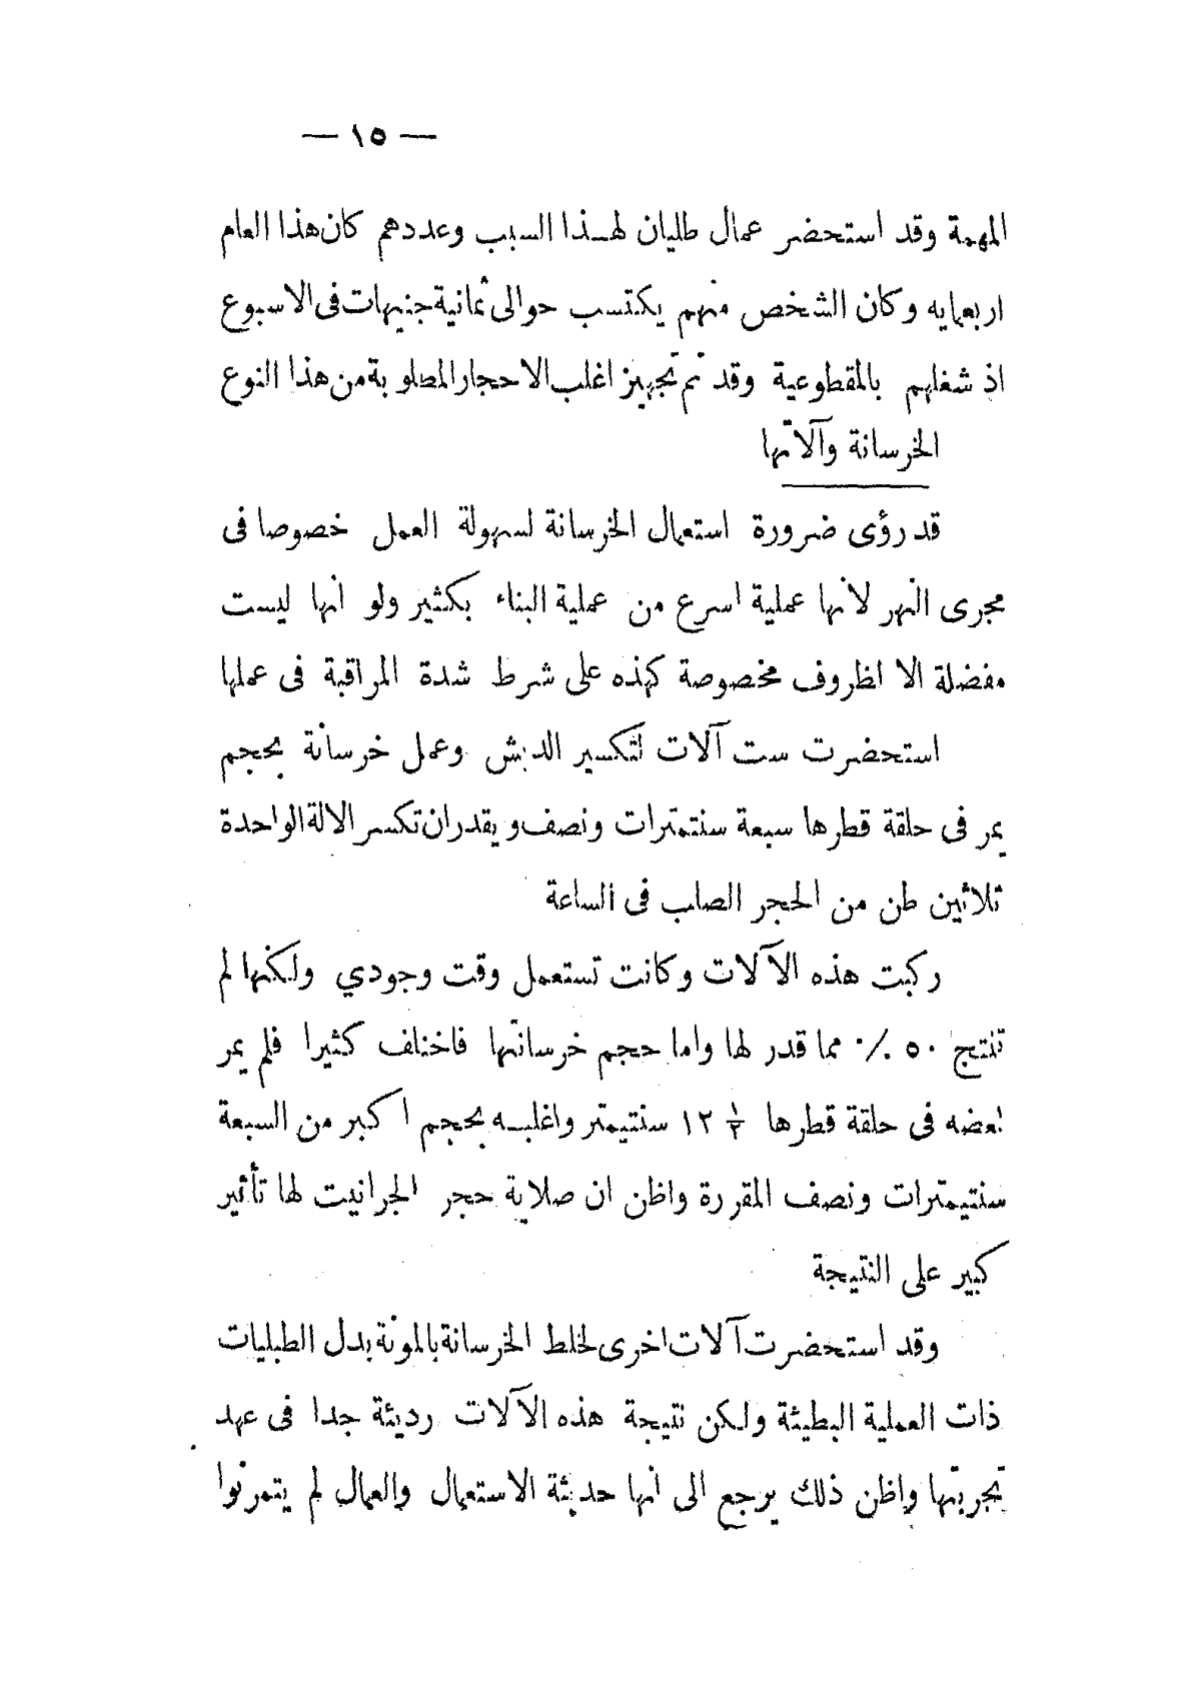 — ١٥ —
المهمة وقد استحضر عمال طليان لهذا السبب وعددهم كان هذا العام
اربعمايه وكان الشخص منهم يكتسب حوالى ثمانية جنيهات فى الاسبوع
اذ شغلهم بالمقطوعية وقد تم تجهيز اغلب الاحجار المطلوبة من هذا النوع
الخرسانة وآلاتها
قد رؤى ضرورة استعمال الخرسانة لسهولة العمل خصوصا فى
مجرى النهر لانها عملية اسرع من عملية البناء بكثير ولو انها ليست
مفضلة الا لظروف مخصوصة كهذه على شرط شدة المراقبة فى عملها
استحضرت ست آلات لتكسير الدبش وعمل خرسانة بحجم
يمر فى حلقة قطرها سبعة سنتمترات ونصف ويقدر ان تكسر الالة الواحدة
ثلاثين طن من الحجر الصلب فى الساعة
ركبت هذه الآلات وكانت تستعمل وقت وجودي ولكنها لم
تنتج ٥٠ ٪ مما قدر لها واما حجم خرسانتها فاختلف كثيرا فلم يمر
بعضه فى حلقة قطرها ١٢ ١/٢ سنتيمتر واغلبه بحجم اكبر من السبعة
سنتيمترات ونصف المقررة واظن ان صلابة حجر الجرانيت لها تأثير
كبير على النتيجة
وقد استحضرت آلات اخرى لخلط الخرسانة بالمونة بدل الطبليات
ذات العملية البطيئة ولكن نتيجة هذه الآلات رديئة جدا فى عهد
تجربتها واظن ذلك يرجع الى انها حديثة الاستعمال والعمال لم يتمرنوا